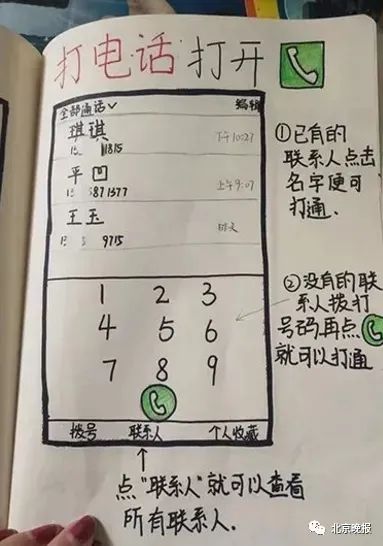 打电话 打开
全部通话 编辑
琪琪
下午10:27
平凹
上午9:07
王玉
昨天
9715
1 2 3
4 5 6
7 8 9
拨号 联系人 个人收藏
①已有的
联系人点击
名字便可
打通.
②没有的联
系人拨打
号码再点
就可以打通
点“联系人”就可以查看
所有联系人.
北京晚报